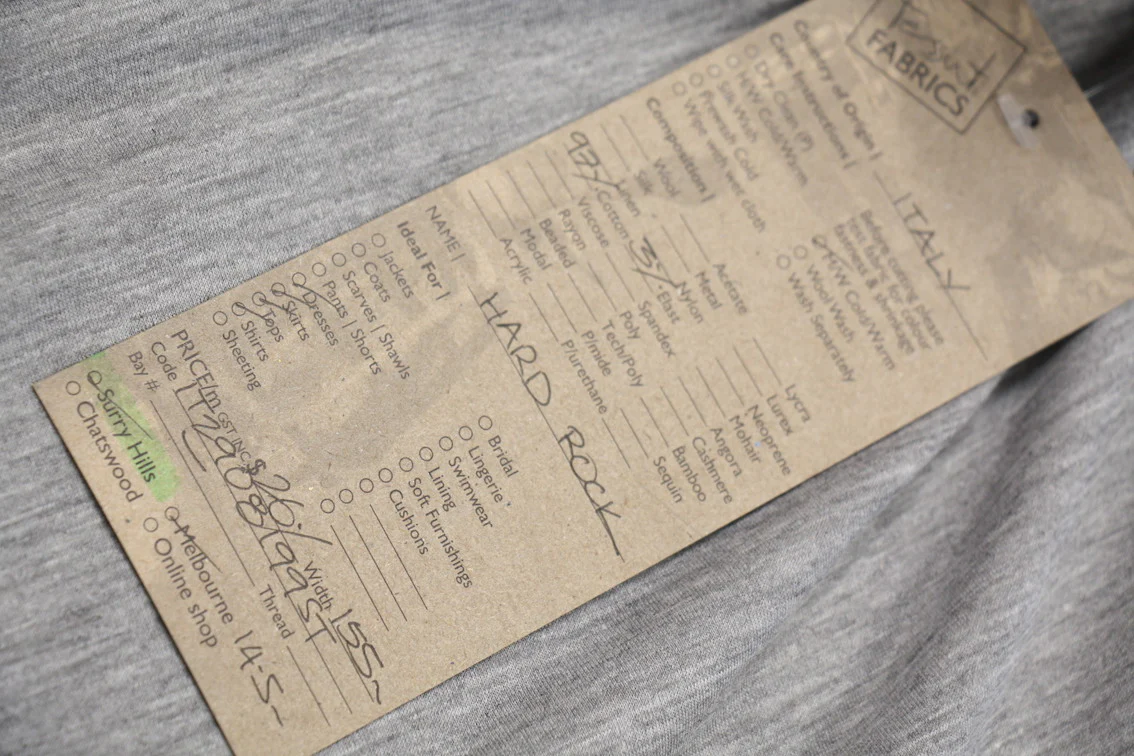 FABRICS
Country of Origin | ITALY
Care Instructions |
Before cutting please
test fabric for colour
fastness & shrinkage
Dry Clean (P)
H/W Cold/Warm
Silk Wash
Prewash Cold
Wipe with wet cloth
M/W Cold/Warm
Wool Wash
Wash Separately
Composition |
Wool
Silk
Linen
97% Cotton
Viscose
Rayon
Beaded
Modal
Acrylic
Acetate
Metal
Nylon
3% Elast
Spandex
Poly
Tech/Poly
P/mide
P/urethane
Lycra
Lurex
Neoprene
Mohair
Angora
Cashmere
Bamboo
Sequin
NAME | HARD ROCK
Ideal For |
Jackets
Coats
Scarves | Shawls
Pants | Shorts
Dresses
Skirts
Tops
Shirts
Sheeting
Bridal
Lingerie
Swimwear
Lining
Soft Furnishings
Cushions
PRICE/m GST INC $26.- Width 155~
Code ITZ908/99ST
Bay # Thread
Surry Hills
Chatswood
Melbourne 14-5~
Online shop